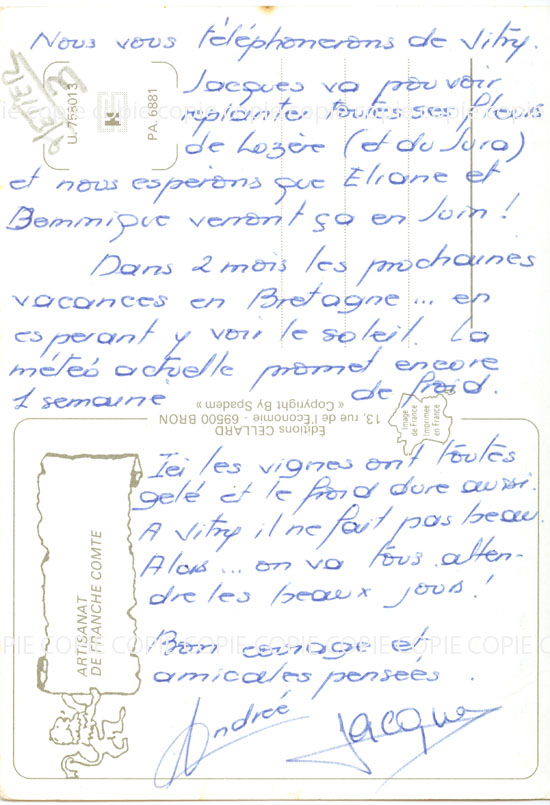 Nous vous téléphonerons de Vitry.
Jacques va pouvoir
replanter toutes ses fleurs
de Lozère (et du Jura)
et nous esperons que Eliane et
Dominique verront ça en Juin !
Dans 2 mois les prochaines
vacances en Bretagne... en
esperant y voir le soleil. La
météo actuelle promet encore
1 semaine de froid.
Ici les vignes ont toutes
gelé et le froid dure aussi.
A Vitry il ne fait pas beau.
Alors... on va tous atten-
dre les beaux jours !
Bon courage et
amicales pensées
Andrée Jacques
U. 755013
PA. 6881
Éditions CELLARD
13, rue de l'Économie - 69500 BRON
« Copyright By Spadem »
Image
de France
Imprimée
en France
ARTISANAT
DE FRANCHE COMTE
COPIE COPIE COPIE COPIE COPIE COPIE
COPIE COPIE COPIE COPIE COPIE COPIE